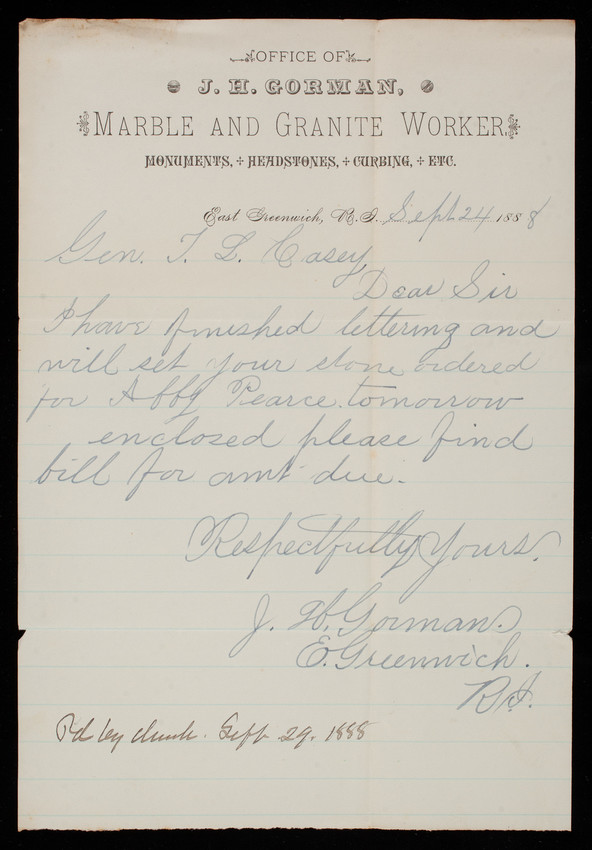 OFFICE OF
J. H. GORMAN,
MARBLE AND GRANITE WORKER,
MONUMENTS, + HEADSTONES, + CURBING, + ETC.
East Greenwich, R. I. Sept 24 1888
Gen. T. L. Casey,
Dear Sir
I have finished lettering and
will set your stone ordered
for Abby Pearce. tomorrow
enclosed please find
bill for amt due.
Respectfully Yours.
J. H. Gorman.
E. Greenwich.
R.I.
Pd by check. Sept. 29. 1888